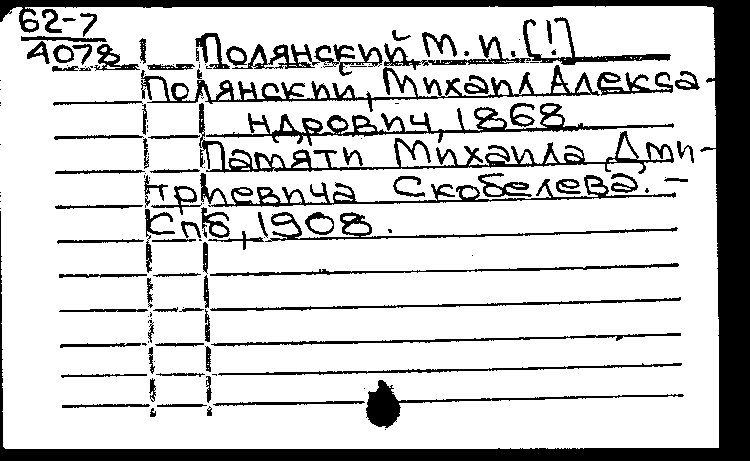 62-7
4078
Полянский, М. И. [!]
Полянский, Михаил Алекса-
ндрович, 1868.
Памяти Михаила Дми-
триевича Скобелева. -
Спб, 1908.